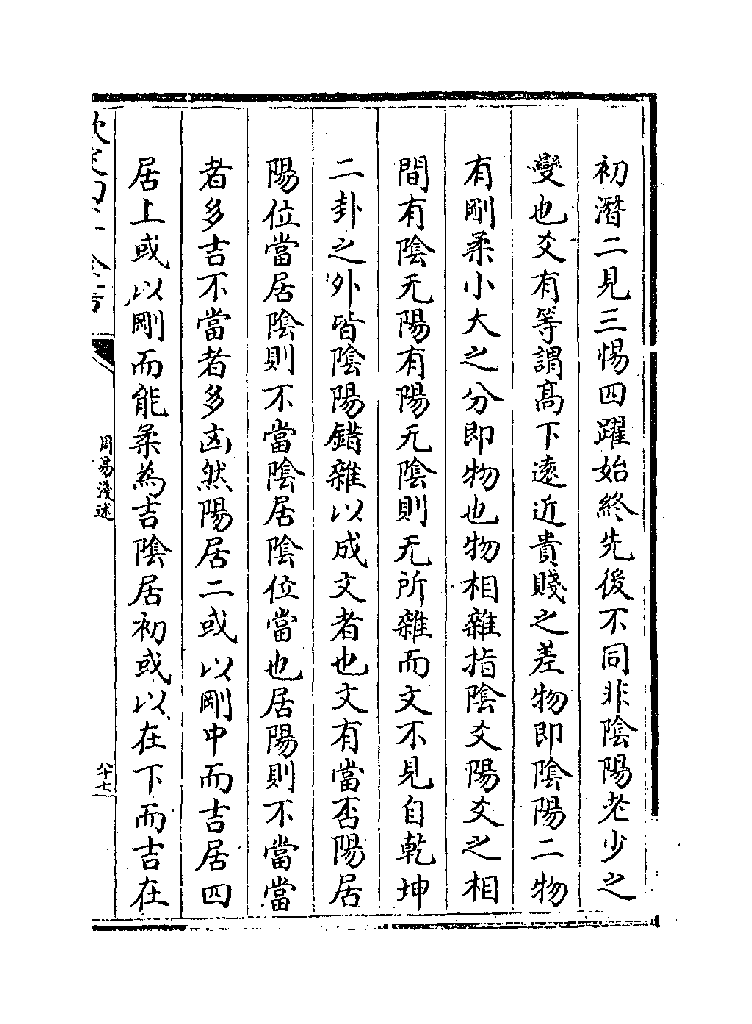 初潛二見三惕四躍始終先後不同非陰陽老少之
變也爻有等謂髙下遠近貴賤之差物即陰陽二物
有剛柔小大之分即物也物相雜指陰爻陽爻之相
間有陰无陽有陽无陰則无所雜而文不見自乾坤
二卦之外皆陰陽錯雜以成文者也文有當否陽居
陽位當居陰則不當陰居陰位當也居陽則不當當
者多吉不當者多凶然陽居二或以剛中而吉居四
居上或以剛而能柔為吉陰居初或以在下而吉在
欽定四庫全書
周易淺述
八十七